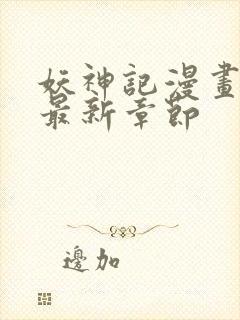 妖神記漫畫
最新章節
邊加